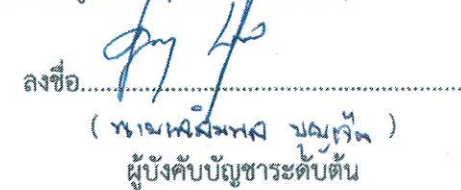 ลงชื่อ
( นายเฉลิมพล บุญเจิม )
ผู้บังคับบัญชาระดับต้น